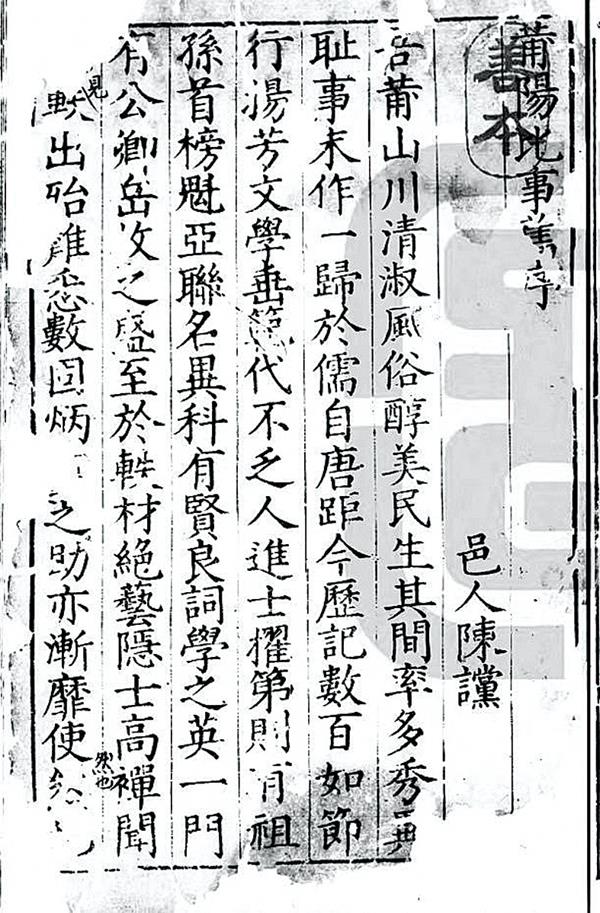 莆陽比事舊序
善本
邑人陳讜
吾莆山川清淑風俗醇美民生其間率多秀異
耻事末作一歸於儒自唐距今歷記數百如節
行湯芳文學垂範代不乏人進士擢第則有祖
孫首榜魁亞聯名異科有賢良詞學之英一門
有公卿岳牧之盛至於軼材絕藝隱士高禪聞
見
軼出殆難悉數固炳 之助亦漸靡使
然也